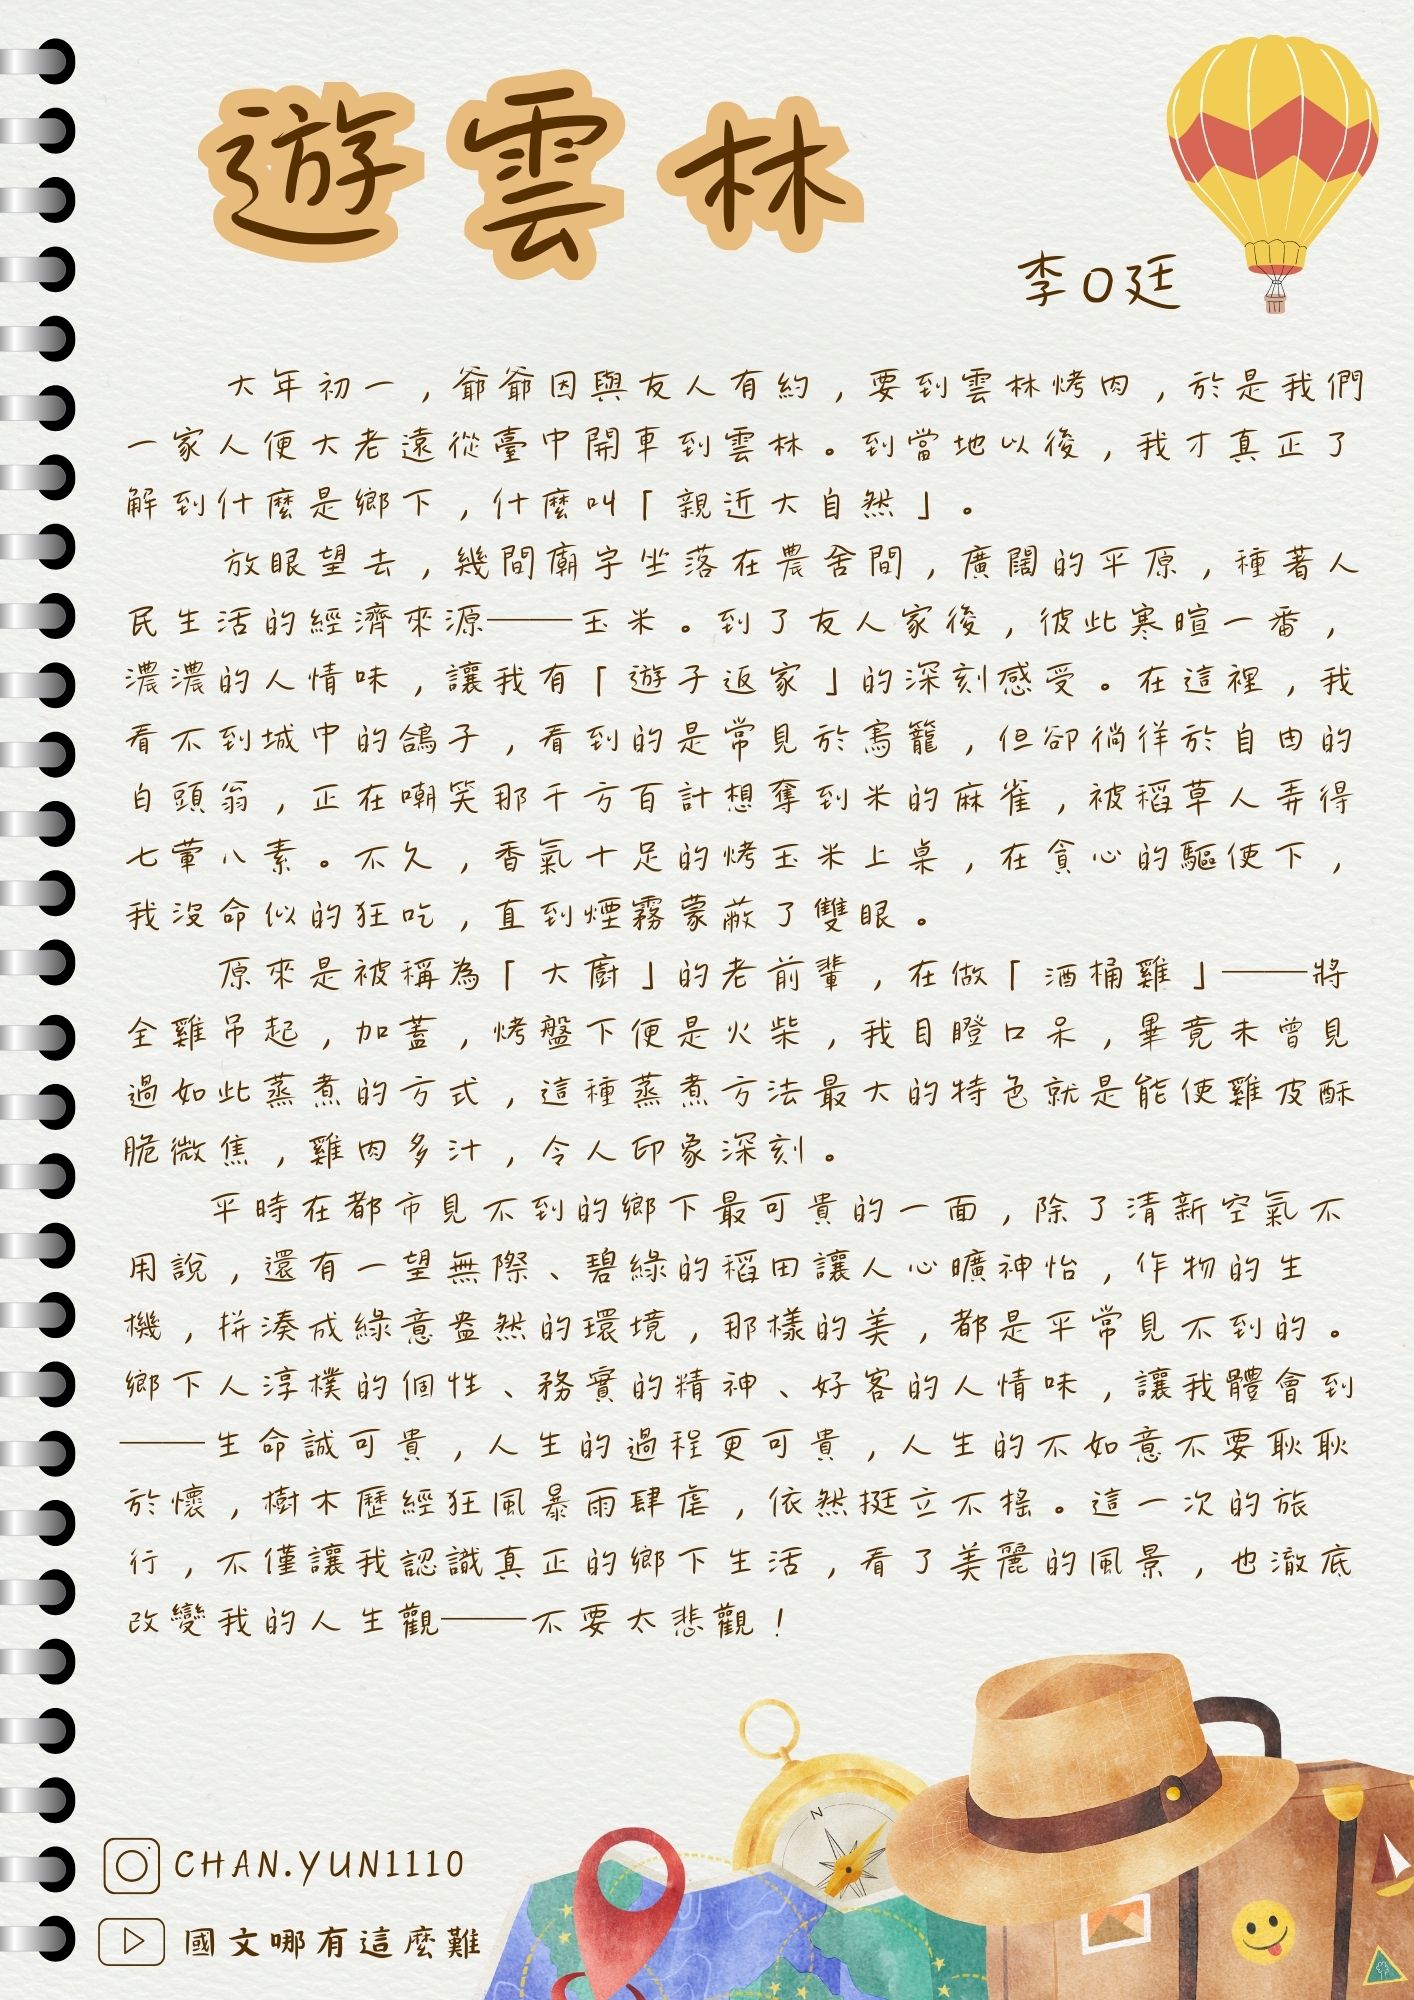 遊雲林
李O廷
大年初一，爺爺因與友人有約，要到雲林烤肉，於是我們
一家人便大老遠從臺中開車到雲林。到當地以後，我才真正了
解到什麼是鄉下，什麼叫「親近大自然」。
放眼望去，幾間廟宇坐落在農舍間，廣闊的平原，種著人
民生活的經濟來源——玉米。到了友人家後，彼此寒暄一番，
濃濃的人情味，讓我有「遊子返家」的深刻感受。在這裡，我
看不到城中的鴿子，看到的是常見於鳥籠，但卻徜徉於自由的
白頭翁，正在嘲笑那千方百計想奪到米的麻雀，被稻草人弄得
七葷八素。不久，香氣十足的烤玉米上桌，在貪心的驅使下，
我沒命似的狂吃，直到煙霧蒙蔽了雙眼。
原來是被稱為「大廚」的老前輩，在做「酒桶雞」——將
全雞吊起，加蓋，烤盤下便是火柴，我目瞪口呆，畢竟未曾見
過如此蒸煮的方式，這種蒸煮方法最大的特色就是能使雞皮酥
脆微焦，雞肉多汁，令人印象深刻。
平時在都市見不到的鄉下最可貴的一面，除了清新空氣不
用說，還有一望無際、碧綠的稻田讓人心曠神怡，作物的生
機，拼湊成綠意盎然的環境，那樣的美，都是平常見不到的。
鄉下人淳樸的個性、務實的精神、好客的人情味，讓我體會到
——生命誠可貴，人生的過程更可貴，人生的不如意不要耿耿
於懷，樹木歷經狂風暴雨肆虐，依然挺立不搖。這一次的旅
行，不僅讓我認識真正的鄉下生活，看了美麗的風景，也澈底
改變我的人生觀——不要太悲觀！
N
CHAN.YUN1110
國文哪有這麼難